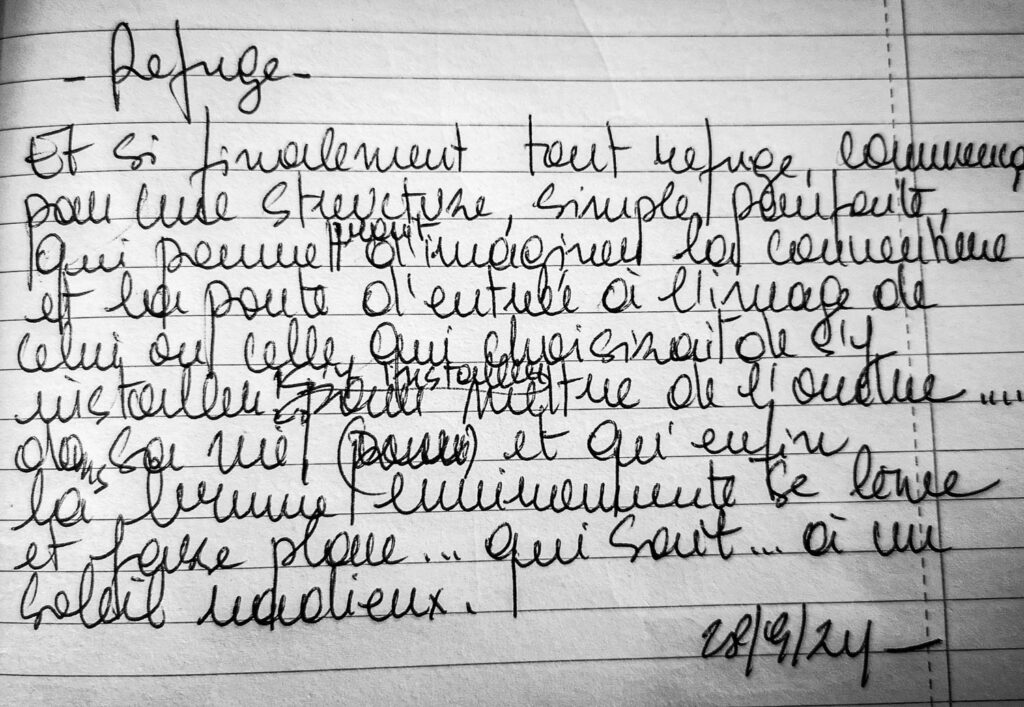 - Refuge -
Et si finalement tout refuge,
par une structure, simple, parfaite,
qui permettrait d'imaginer la
et la porte d'entrée à l'image de
celui ou celle, qui choisirait de s'y
installer, mettre de l'ordre ....
dans sa vie, (pour) et qu'enfin
la brume environnante se lève
et fasse place... qui sait... à un
soleil radieux.
28/9/24